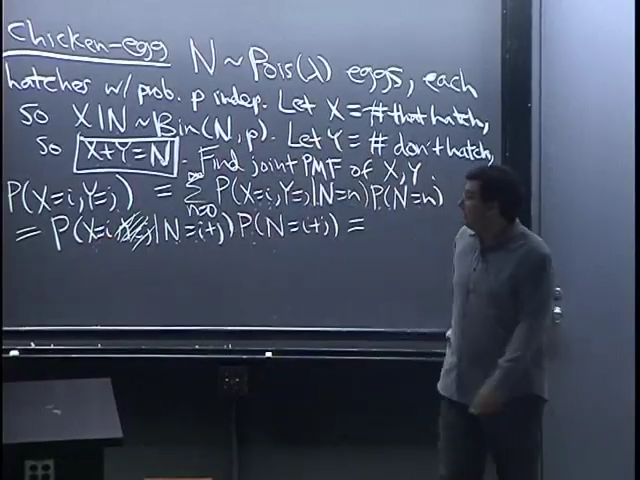 chicken-egg N ~ Pois(λ) eggs, each
hatches w/ prob. p indep. Let X = # that hatch,
so X|N ~ Bin(N, p). Let Y = # don't hatch,
so X+Y=N. Find joint PMF of X, Y.
P(X=i, Y=j) = ∑_{n=0}^{∞} P(X=i, Y=j|N=n)P(N=n)
= P(X=i |N=i+j)P(N=i+j) =